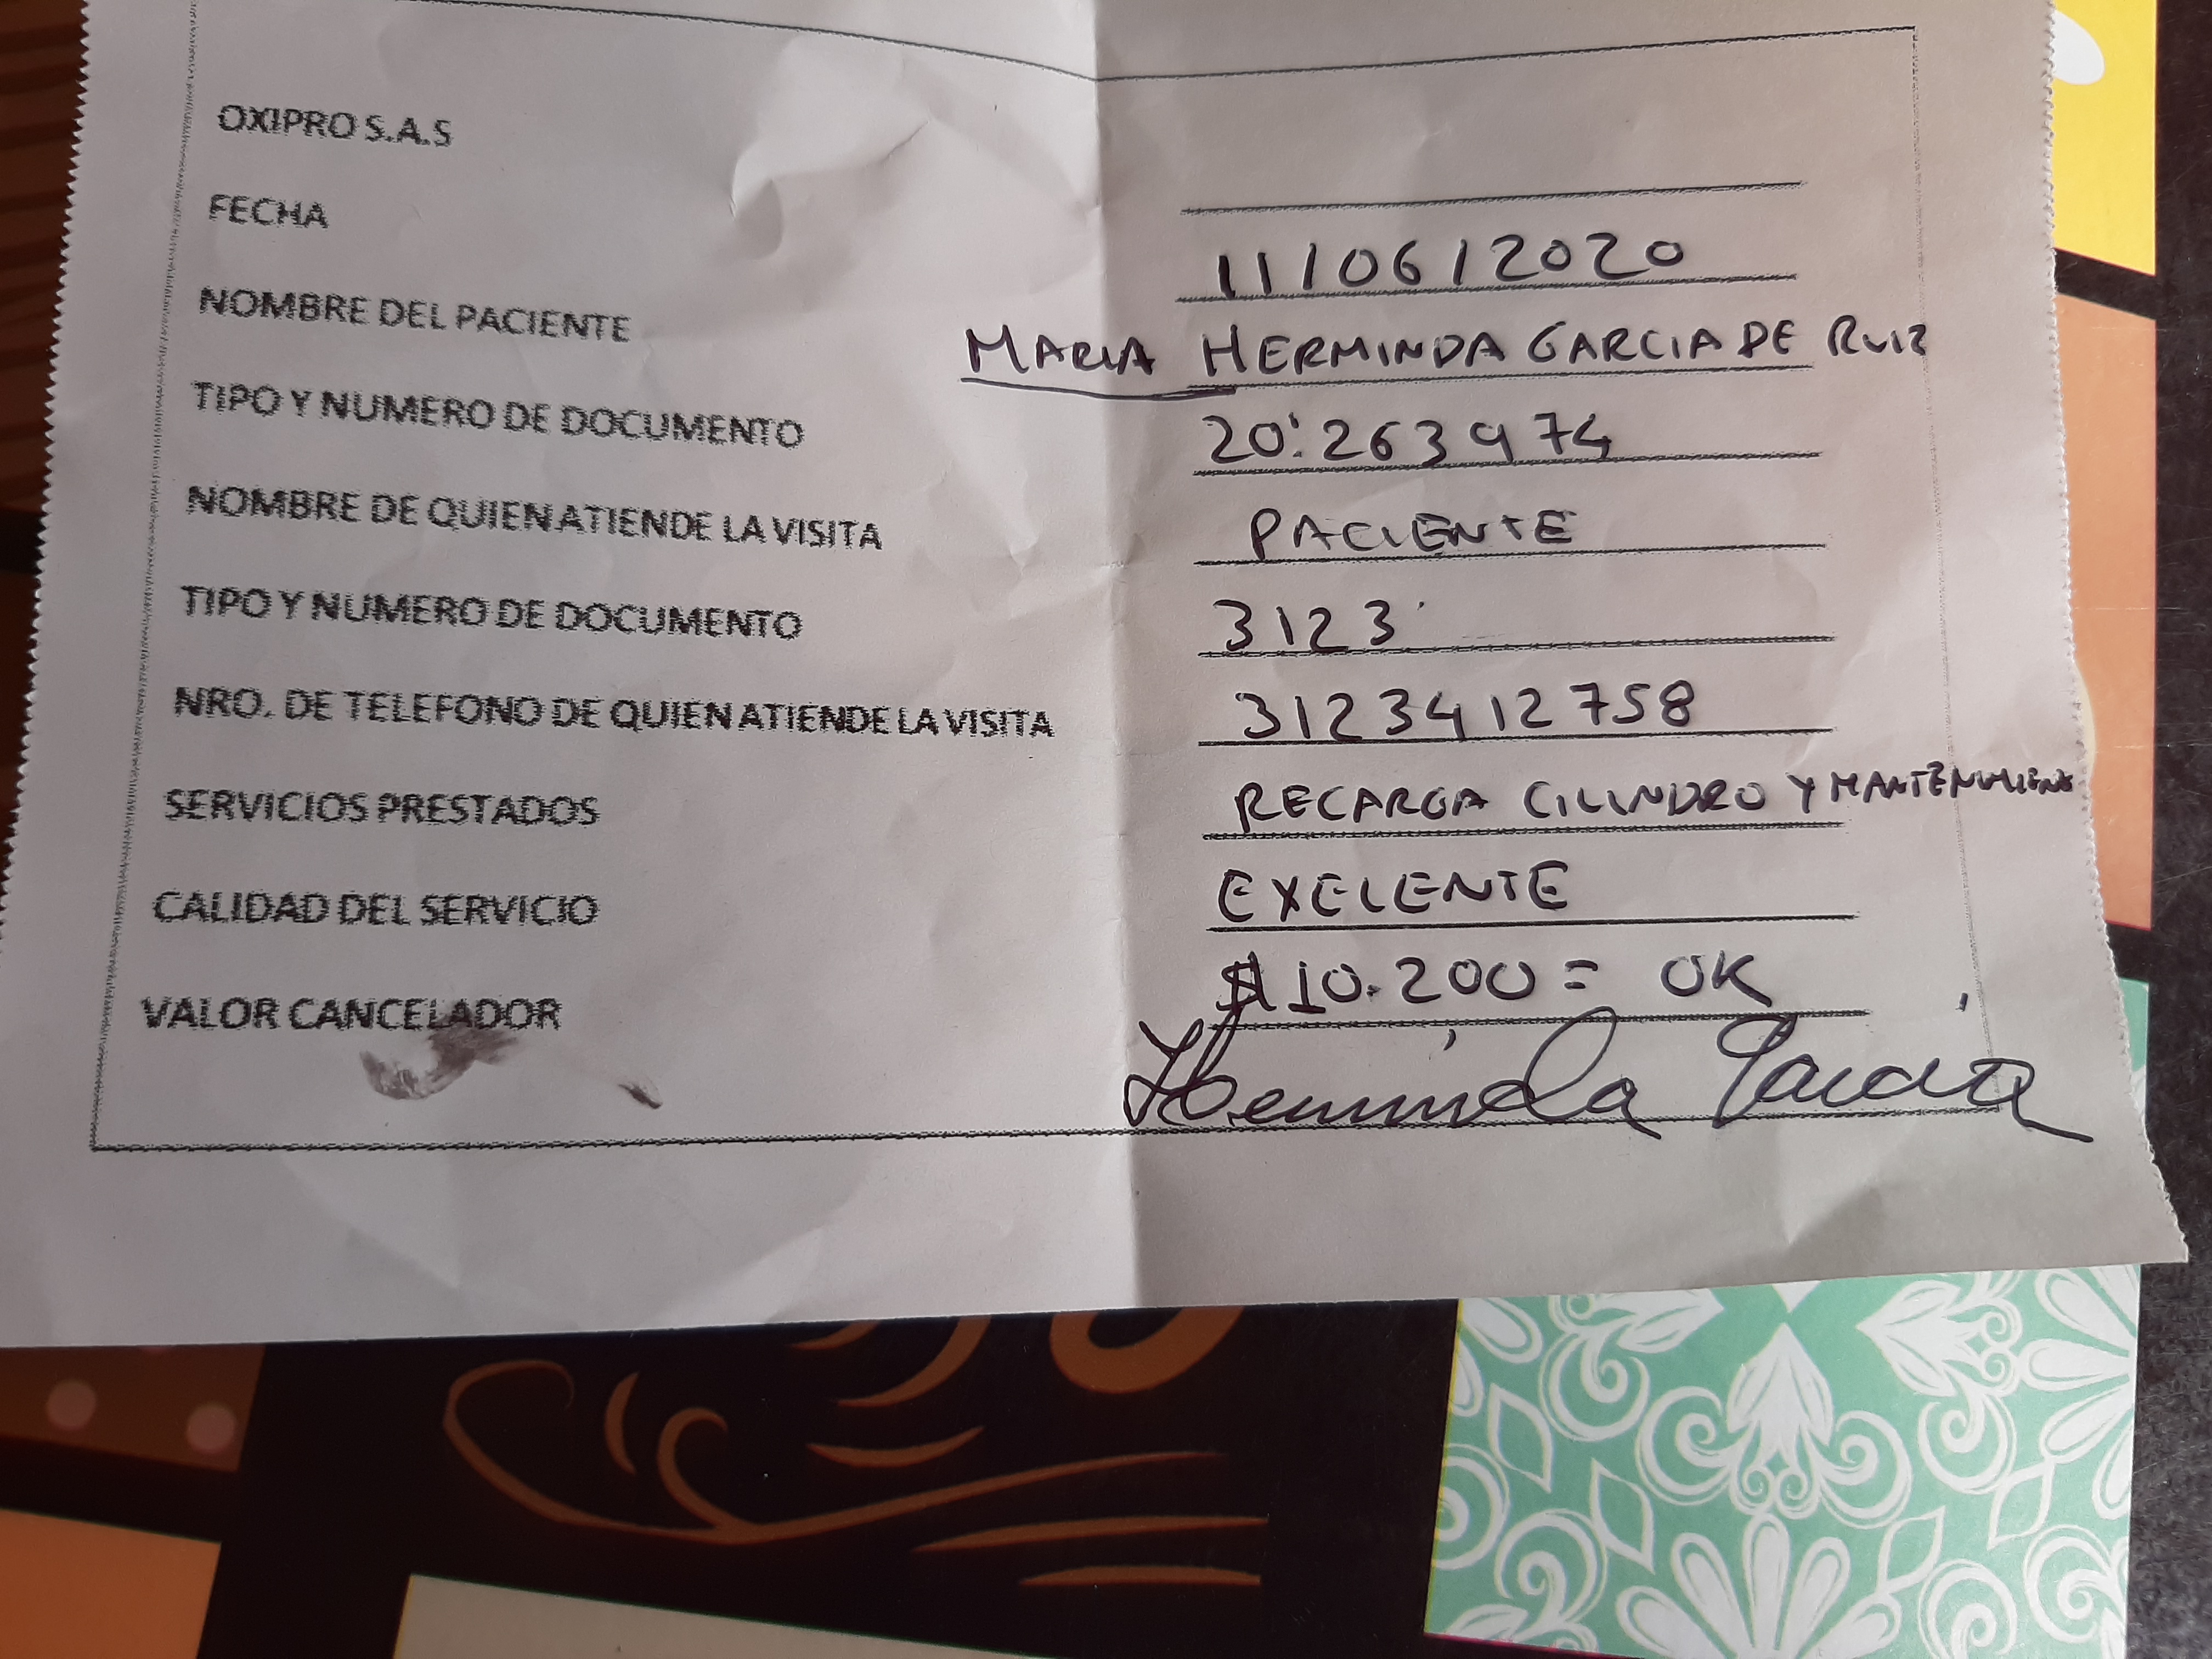 OXIPRO S.A.S
FECHA 11/06/2020
NOMBRE DEL PACIENTE MARIA HERMINDA GARCIA DE RUIZ
TIPO Y NUMERO DE DOCUMENTO 20:263974
NOMBRE DE QUIEN ATIENDE LA VISITA PACIENTE
TIPO Y NUMERO DE DOCUMENTO 3123
NRO. DE TELEFONO DE QUIEN ATIENDE LA VISITA 3123412758
SERVICIOS PRESTADOS RECARGA CILINDRO Y MANTENIMIENTO
CALIDAD DEL SERVICIO EXELENTE
VALOR CANCELADOR $10.200= OK
Herminda Garcia